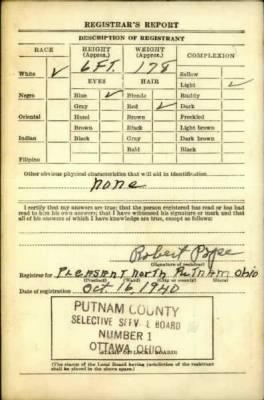 REGISTRAR'S REPORT
DESCRIPTION OF REGISTRANT
RACE HEIGHT (Approx.) WEIGHT (Approx.) COMPLEXION
6 FT. 178
White ✓ Sallow
EYES HAIR Light ✓
Negro Blue ✓ Blonde Ruddy
Gray Red ✓ Dark
Oriental Hazel Brown Freckled
Brown Black Light brown
Indian Black Gray Dark brown
Bald Black
Filipino
Other obvious physical characteristics that will aid in identification
None
I certify that my answers are true; that the person registered has read or has had
read to him his own answers; that I have witnessed his signature or mark and that
all of his answers of which I have knowledge are true, except as follows:
Robert Pope
(Signature of registrar)
Registrar for Pleasant North Putnam Ohio
(Precinct) (Ward) (City or county) (State)
Date of registration Oct 16, 1940
PUTNAM COUNTY
SELECTIVE SERV. E BOARD
NUMBER 1
OTTAWA, OHIO
(STAMP OF LOCAL BOARD)
(The stamp of the Local Board having jurisdiction of the registrant
shall be placed in the above space.)